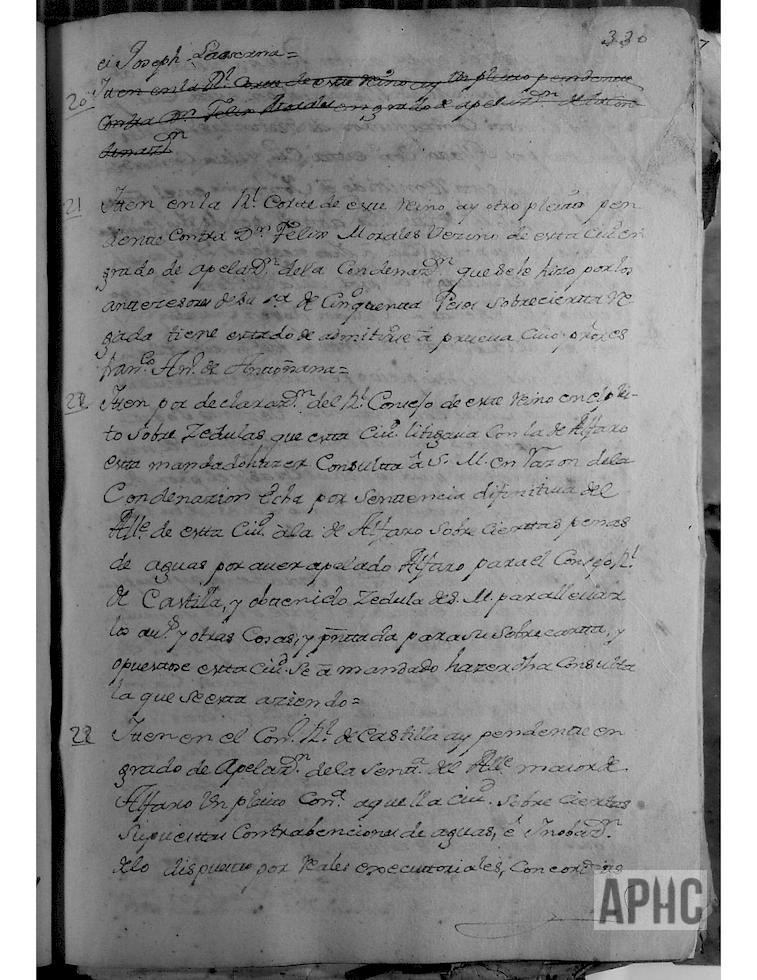 330
ci Joseph Lascrana=
20 Iten en la Rl. Corte de este Reino ay Un pleito pendiente
Contra Dn. Felix Morales en grado de apelazn. de la Con
denazn.
21 Iten en la Rl. Corte de este Reino ay otro pleito pen
diente Contra Dn. Felix Morales Vezino de esta Ciud. en
grado de apelazn. de la Condenazn. que se le hizo por los
antezesores de su sa. de Cinquenta Pesos sobre cierta Re
gada tiene estado de admitirse â prueva Cuio pror. es
franco. Anto. de Antoñana=
22 Iten por declarazn. del Rl. Consejo de este Reino en el plei-
to sobre Zedulas que esta Ciud. litigava Con la de Alfaro
esta mandado hazer Consulta â S. M. en razon de la
Condenazion echa por Sentencia difinitiva del
Alle. de esta Ciud. â la de Alfaro sobre ciertas penas
de aguas por aver apelado Alfaro para el Consejo Rl.
de Castilla, y obtenido Zedula de S. M. para llevar
los autos y otras Cosas, y pntada para su sobrecarta, y
opuestose esta Ciud. se â mandado hazer dha Consulta
la que se esta aziendo=
22 Iten en el Cons. Rl. de Castilla ay pendiente en
grado de Apelazn. de la Senta. del Alle. maior de
Alfaro Un pleito Cona. aquella Ciud. sobre Ciertas
supuestas Contrabenciones de aguas, ê Inobzn.
de lo dispuesto por Reales executoriales, Concordias
APHC